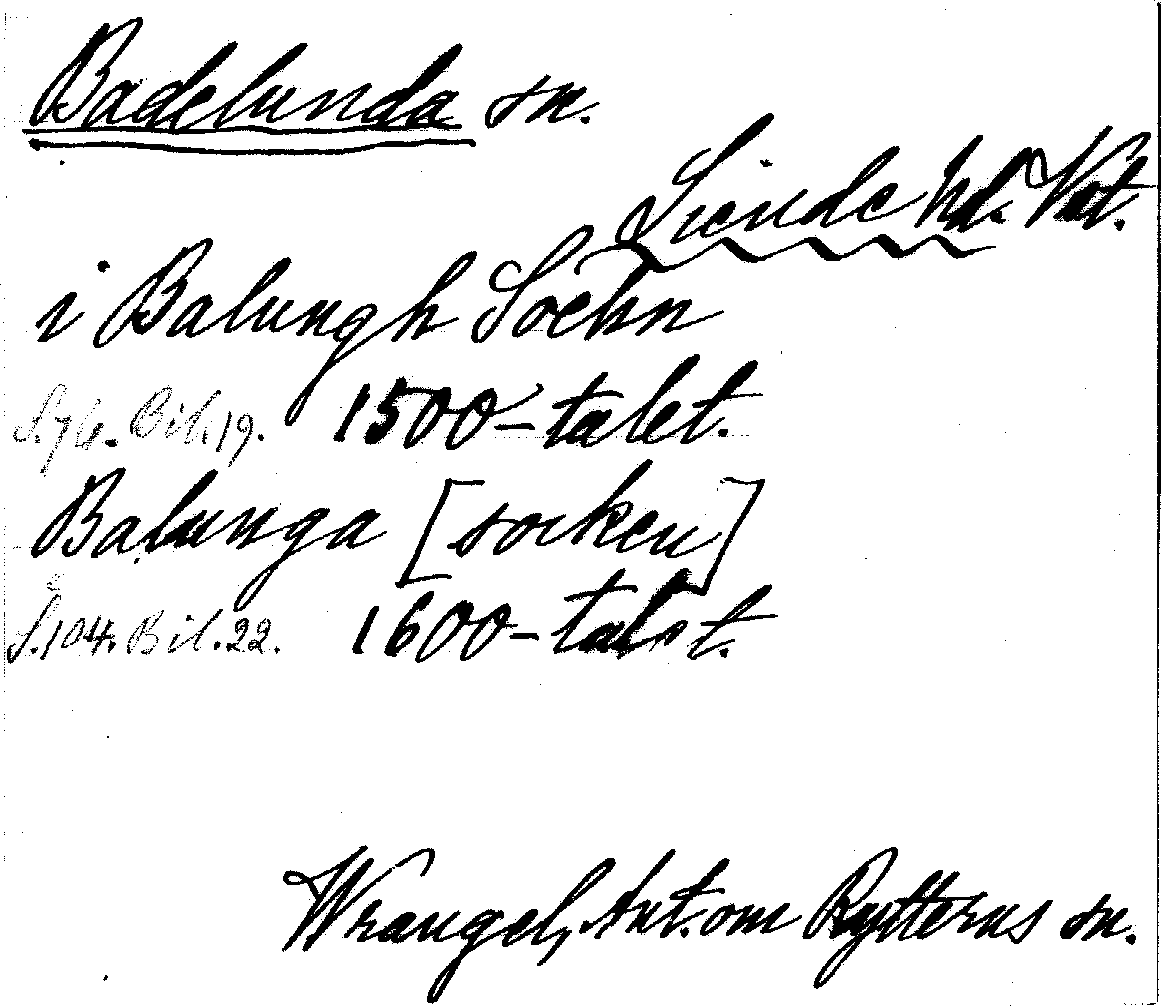 Badelunda sn.
Siende hd. Vst.
i Balungh Sochn
S. 76. Bil. 19. 1500-talet.
Balunga [socken]
S. 104. Bil. 22. 1600-talet.
Wrangel, Ant. om Rytterns sn.